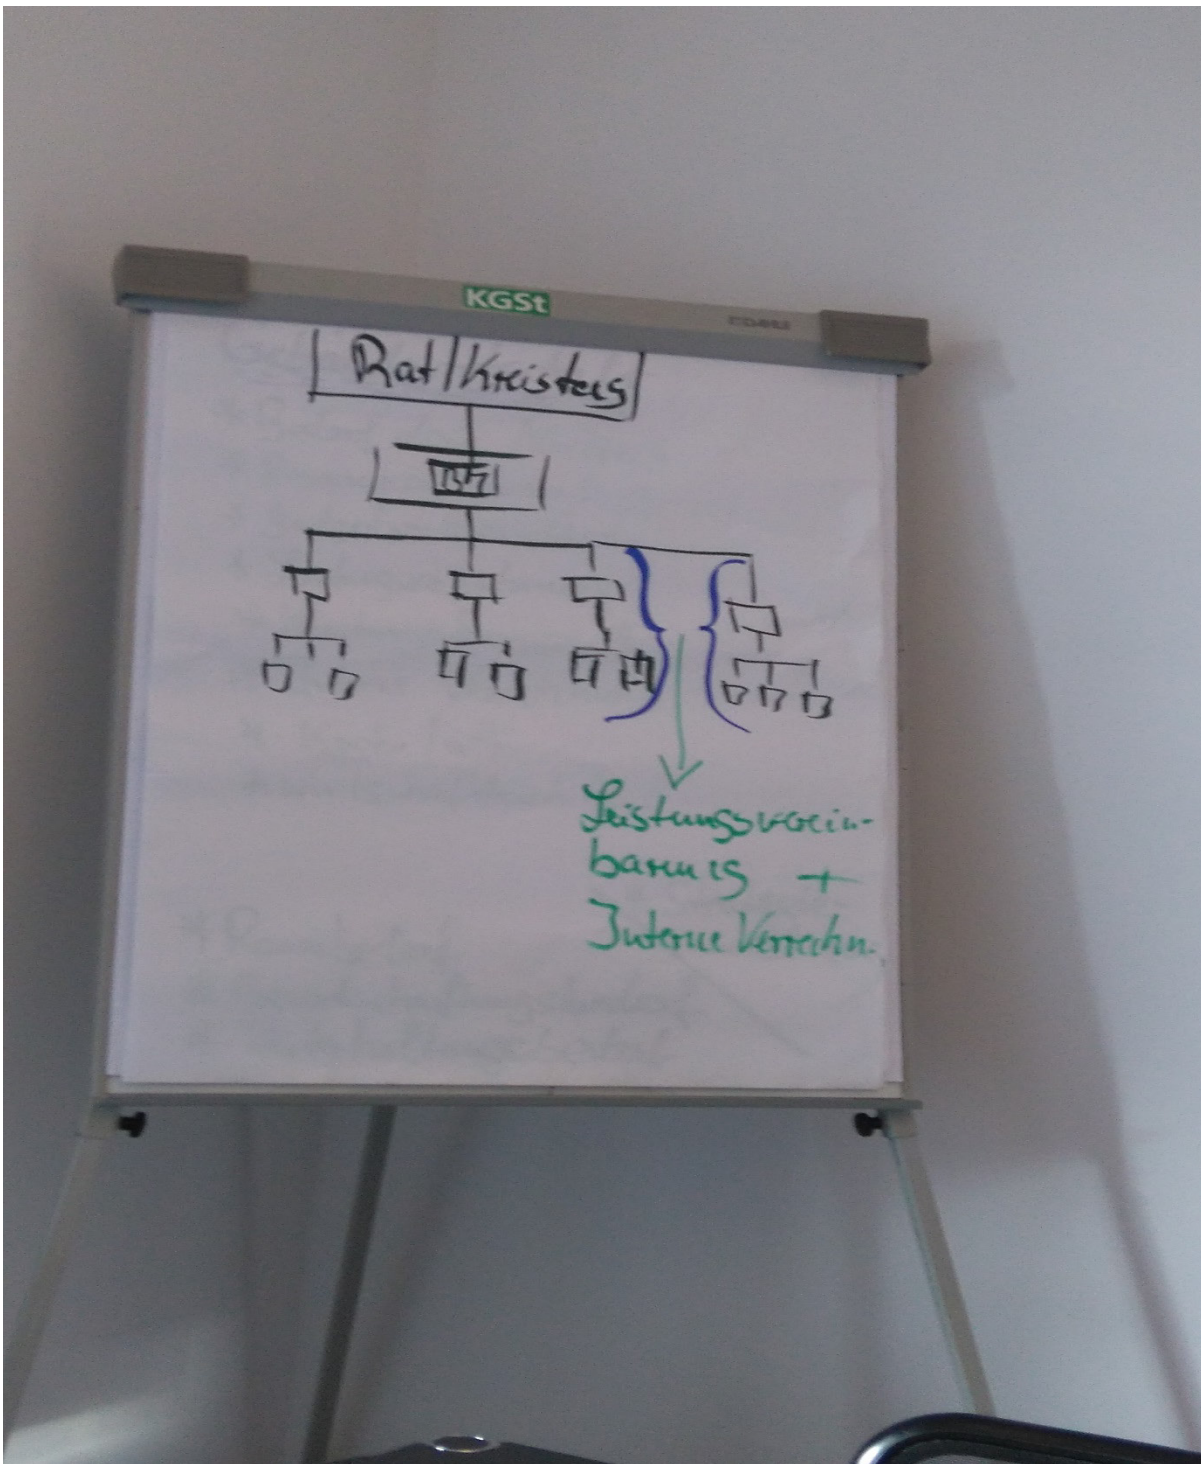 KGSt
Rat/Kreistag
Leistungsverein-
barung +
Interne Verrechn.